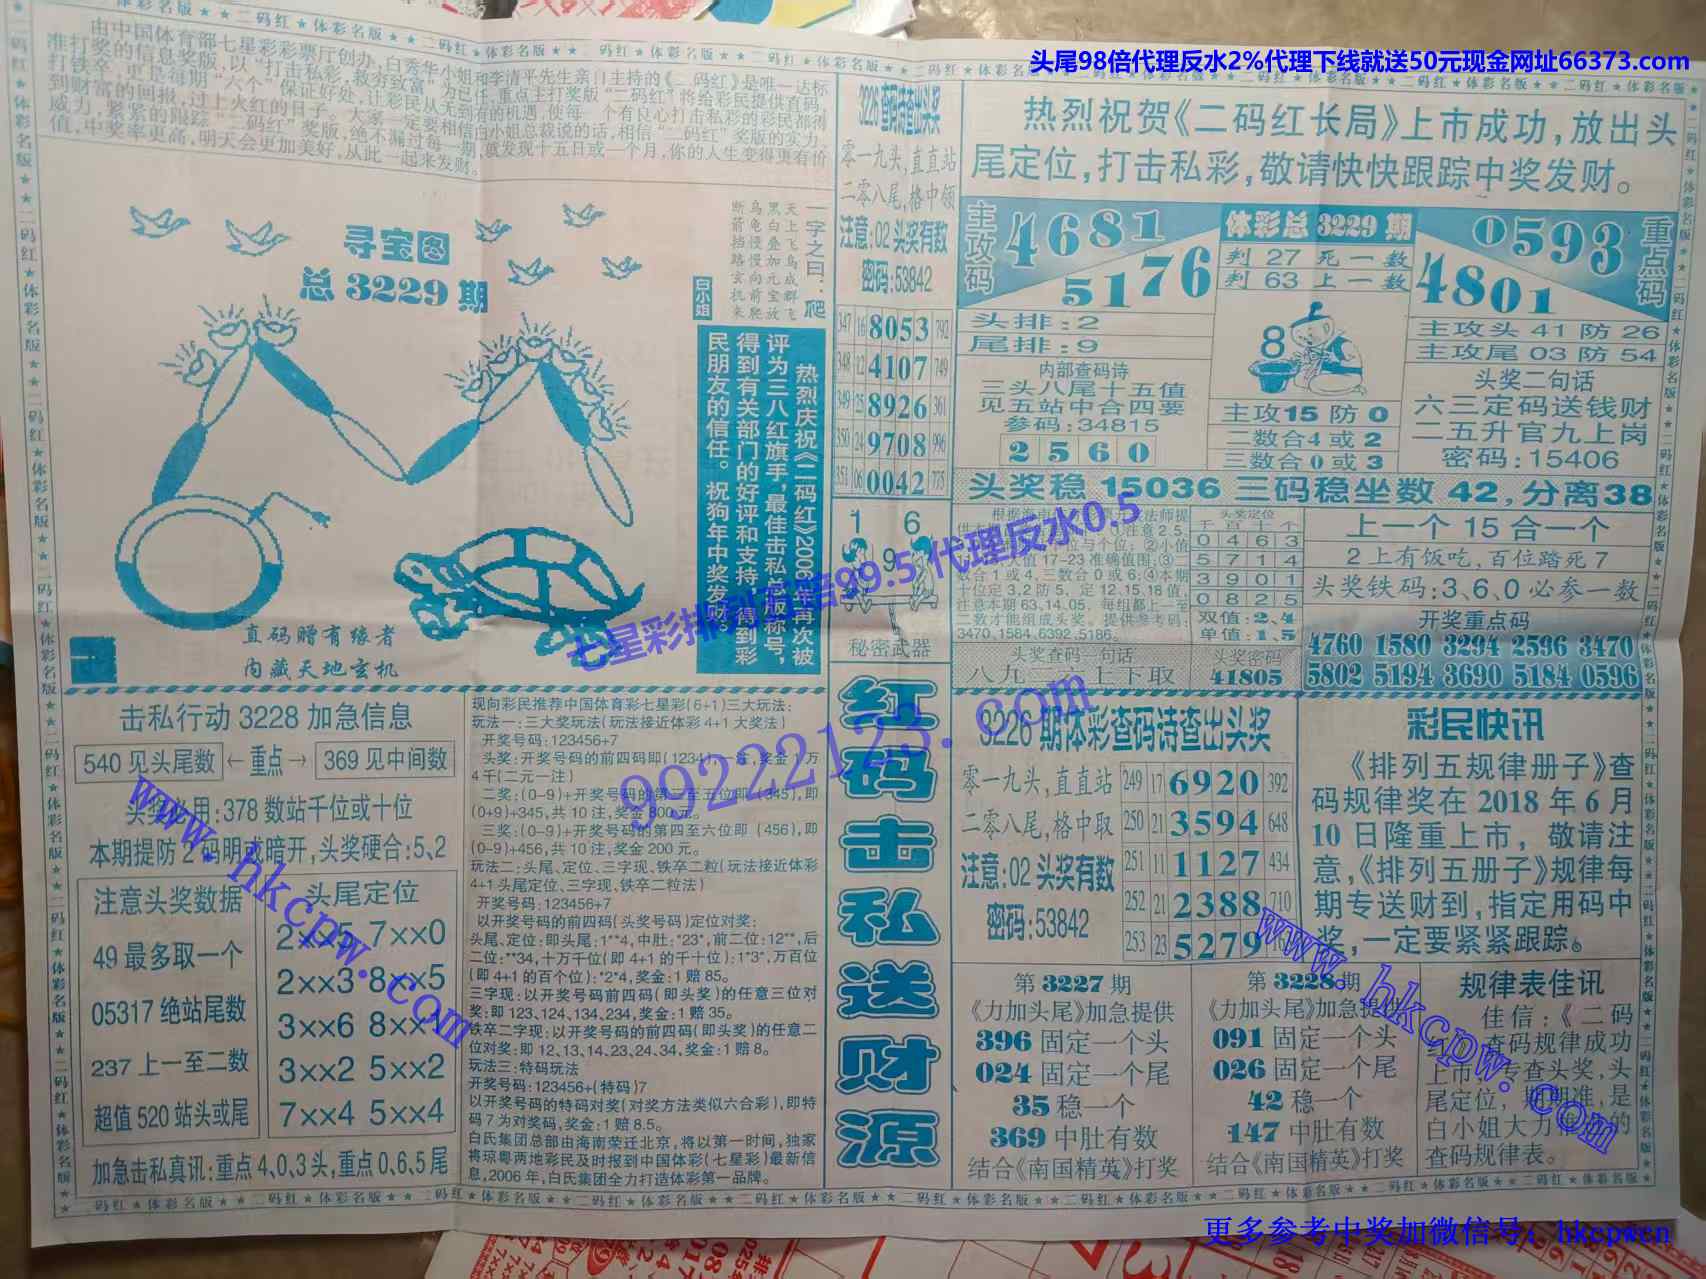 头尾98倍代理反水2%代理下线就送50元现金网址66373.com
由中国体育部七星彩彩票厅创办,白秀华小姐和李清平先生亲自主持的《二码红》是唯一达标
威力,紧紧的跟踪“二码红”奖版,绝不漏过每一期,
值,中奖率更高,明天会更加美好,从此一起来发财。
寻宝图
总3229期
一字之曰:爬
天上飞鸟成群飞
黑白叠加元宝放
乌龟慢慢向前爬
断箭挡路玄机来
白小姐
热烈庆祝《二码红》2006年再次被
评为三八红旗手,最佳击私总版称号,
得到有关部门的好评和支持,得到彩
民朋友的信任。祝狗年中奖发财。
直码赠有缘者
内藏天地玄机
3226
零一九头,直直站
二零八尾,格中领
注意:02头奖有数
密码:53842
347 16 8053 792
348 12 4107 749
349 25 8926 361
350 24 9708 996
351 06 0042 775
1 6
9
秘密武器
红码击私送财源
热烈祝贺《二码红长局》上市成功,放出头
尾定位,打击私彩,敬请快快跟踪中奖发财。
主攻码
4681
5176
体彩总3229期
判27死一数
判63上一数
0593
4801
重点码
头排:2
尾排:9
内部查码诗
三头八尾十五值
见五站中合四要
参码:34815
2560
8
主攻15防0
二数合4或2
三数合0或3
主攻头41防26
主攻尾03防54
头奖二句话
六三定码送钱财
二五升官九上岗
密码:15406
头奖稳15036三码稳坐数42,分离38
大值17-23准确值围:③二
数合1或4,三数合0或6;④本期
十位定3,2防5、定12,15,18值,
注意本期63,14,05,每组都上一至
二数才能组成头奖。提供参考码:
3470,1584,6392,5186。
头奖定位
千百十个
0463
5714
3901
0825
双值:2、4
单值:1、5
头奖查码一句话
上下取
头奖密码
41805
上一个15合一个
2上有饭吃,百位踏死7
头奖铁码:3、6、0必参一数
开奖重点码
4760 1580 3294 2596 3470
5802 5194 3690 5184 0596
击私行动3228加急信息
540见头尾数←重点→369见中间数
头奖必用:378数站千位或十位
本期提防2码明或暗开,头奖硬合:5、2
注意头奖数据
49最多取一个
05317绝站尾数
237上一至二数
超值520站头或尾
头尾定位
2××5 7××0
2××3 8××5
3××6 8××1
3××2 5××2
7××4 5××4
加急击私真讯:重点4、0、3头,重点0、6、5尾
现向彩民推荐中国体育彩七星彩(6+1)三大玩法:
玩法一:三大奖玩法(玩法接近体彩4+1大奖法)
开奖号码:123456+7
头奖:开奖号码的前四码即(1234),一注,奖金1万
4千(二元一注)
二奖:(0-9)+开奖号码的第三至五位即(345),即
(0+9)+345,共10注,奖金800元。
三奖:(0-9)+开奖号码的第四至六位即(456),即
(0-9)+456,共10注,奖金200元。
玩法二:头尾、定位、三字现、铁卒二粒(玩法接近体彩
4+1头尾定位、三字现、铁卒二粒法)
开奖号码:123456+7
以开奖号码的前四码(头奖号码)定位对奖:
头尾、定位:即头尾:1**4,中肚:*23*,前二位:12**,后
二位:**34,十万千位(即4+1的千十位):1*3*,万百位
(即4+1的百个位):*2*4,奖金:1赔85。
三字现:以开奖号码前四码(即头奖)的任意三位对
奖:即123,124,134,234,奖金:1赔35。
铁卒二字现:以开奖号码的前四码(即头奖)的任意二
位对奖:即12、13、14、23、24、34,奖金:1赔8。
玩法三:特码玩法
开奖号码:123456+(特码)7
以开奖号码的特码对奖(对奖方法类似六合彩),即特
码7为对奖码,奖金:1赔8.5。
白氏集团总部由海南荣迁北京,将以第一时间,独家
将琼粤两地彩民及时报到中国体彩(七星彩)最新信
息,2006年,白氏集团全力打造体彩第一品牌。
3226期体彩查码诗查出头奖
零一九头,直直站
二零八尾,格中取
注意:02头奖有数
密码:53842
249 17 6920 392
250 21 3594 648
251 11 1127 434
252 21 2388 710
253 23 5279
彩民快讯
《排列五规律册子》查
码规律奖在2018年6月
10日隆重上市,敬请注
意,《排列五册子》规律每
期专送财到,指定用码中
奖,一定要紧紧跟踪。
第3227期
《力加头尾》加急提供
396固定一个头
024固定一个尾
35稳一个
369中肚有数
结合《南国精英》打奖
第3228期
《力加头尾》加急提供
091固定一个头
026固定一个尾
42稳一个
147中肚有数
结合《南国精英》打奖
规律表佳讯
佳信:《二码
红》查码规律成功
上市,专查头奖,头
尾定位,期期准,是
白小姐大力推荐的
查码规律表。
七星彩排列五赔99.5代理反水0.5
99222123.com
www.hkcpw.com
www.hkcpw.com
更多参考中奖加微信号:hkcpwcn